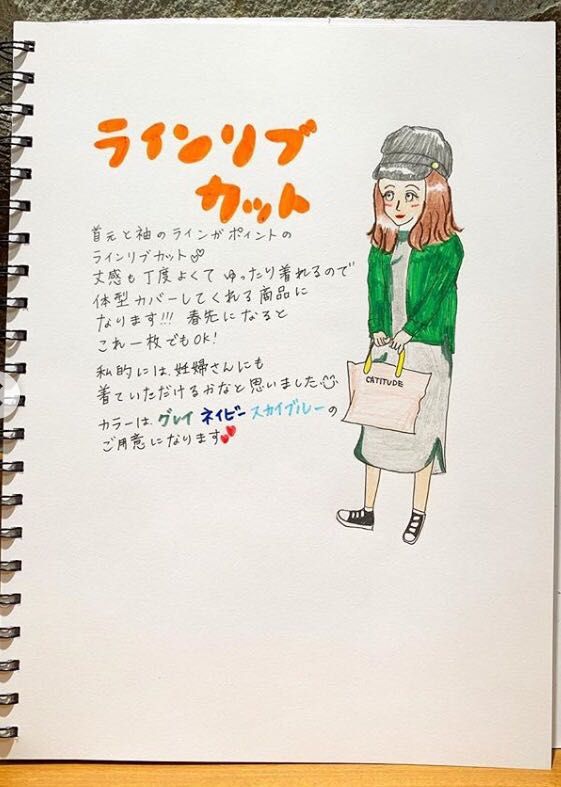 ラインリブ
カット
首元と袖のラインがポイントの
ラインリブカット
丈感も丁度よくて ゆったり着れるので
体型カバーしてくれる商品に
なります!!! 春先になると
これ一枚でもOK!
私的には、妊婦さんにも
着ていただけるかなと思いました
カラーは、グレイ ネイビー スカイブルーの
ご用意になります
CATITUDE